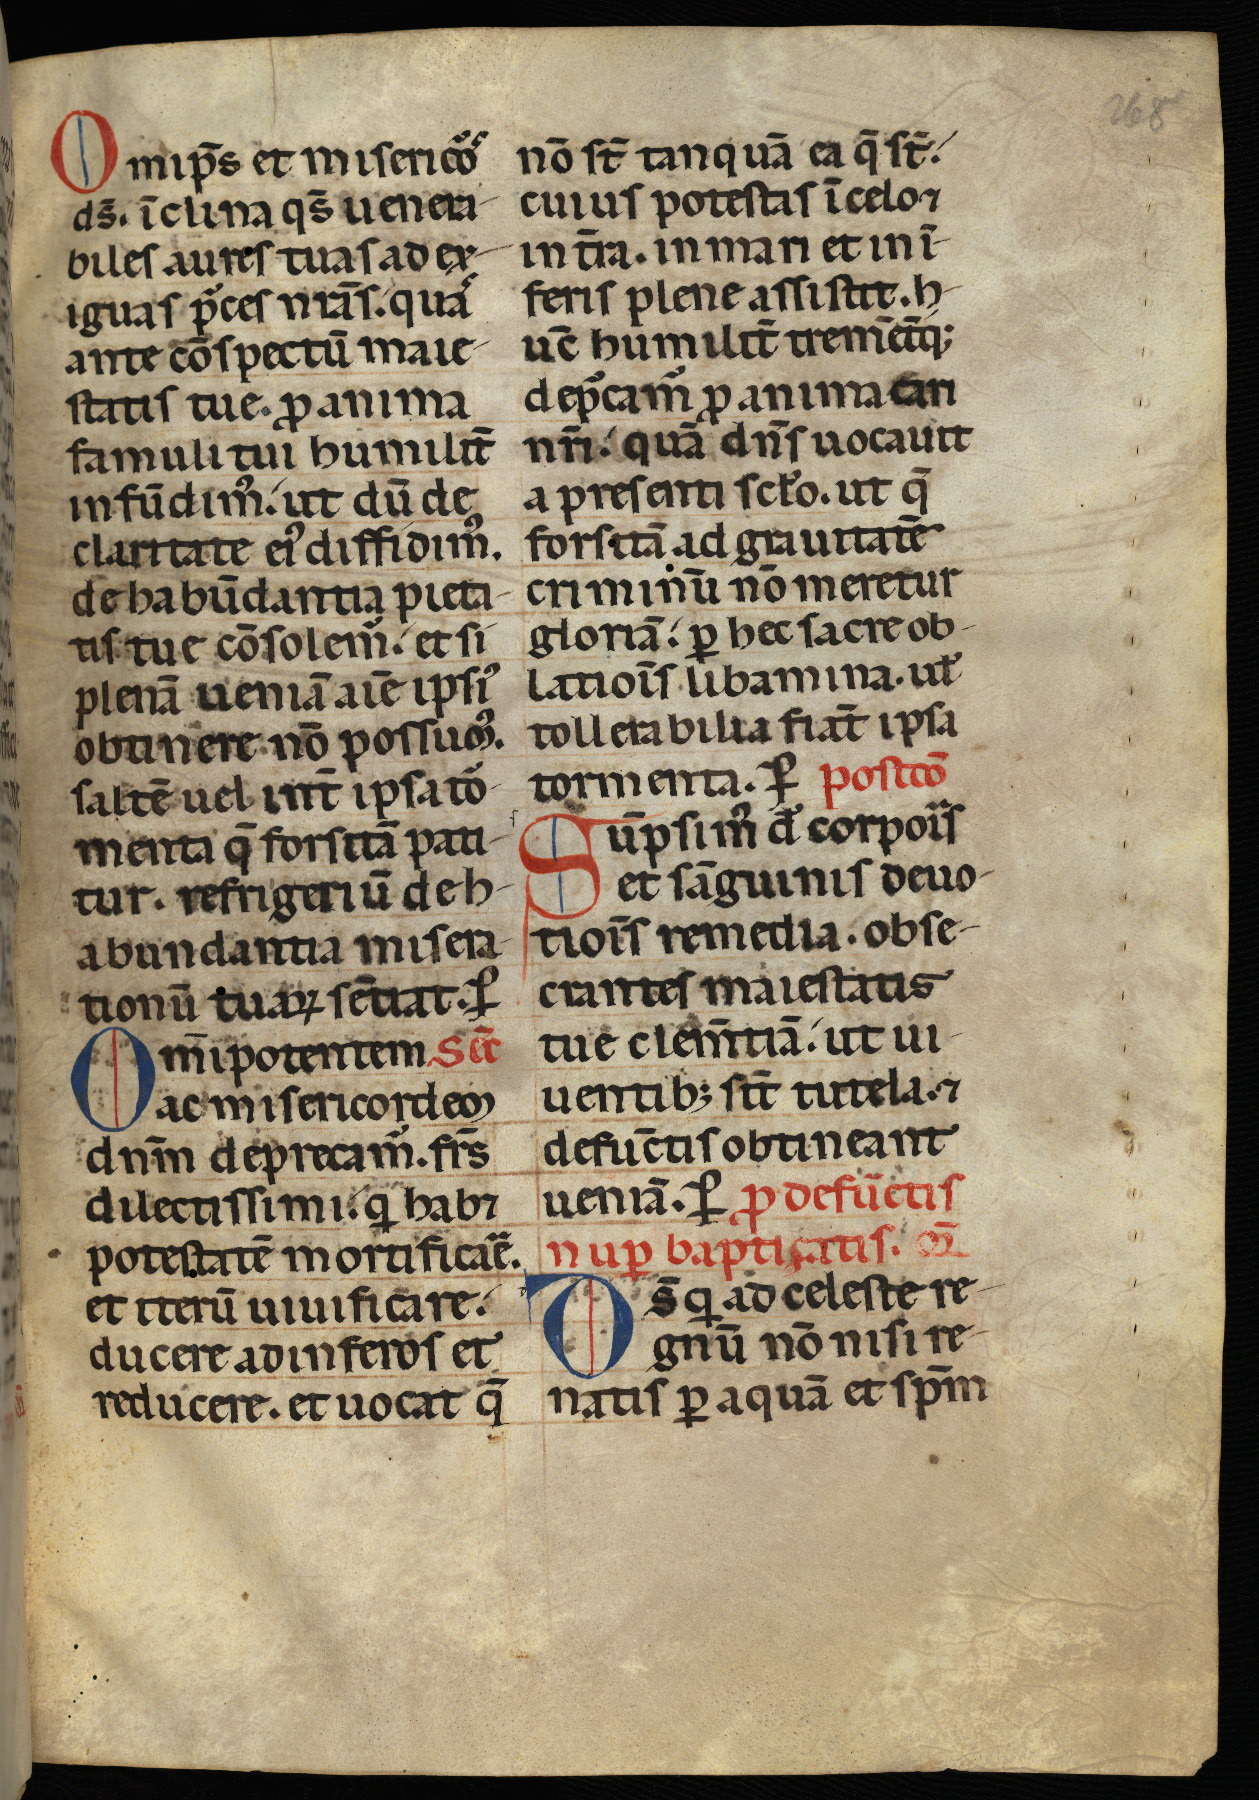 268
Omip̄s et misericõꝰſ
dſ̄. īclina qſ̄ uenera-
biles aures tuas ad ex-
iguas p̄ces nrāſ. quaſ
ante cōspectū maie-
statis tue. ꝓ anima
famuli tui humilit̄
infūdimꝰ. ut dū de
claritate eiꝰ diffidimꝰ.
de habūdantia pieta-
tis tue cōsolemꝰ. et si
plenā ueniā aīe ipsiꝰ
obtinere nō possumꝰ.
saltē uel int̄ ipsa tō-
menta q̄ forsitā pati-
tur. refrigeriū de h-
abundantia misera-
tionū tuaꝝ sētiat. P̄
Om̄ipotentem Sēc
ac misericordem
dn̄m deprecamꝰ. fr̄s
dilectissimi. qi habꝫ
potestatē mortificare.
et iterū uiuificare.
ducere ad inferos et
reducere. et uocat q̄
nō st̄ tanquā ea q̄ st̄.
cuius potestas ī celo ⁊
in t̄ra. in mari et in ī-
feris plene assistit. h-
uc̄ humilit̄ tremēt̄qꝫ
dep̄camꝰ ꝓ anima cari
nr̄i. quā dn̄s uocauit
a presenti sc̄lo. ut q̄
forsitā ad grauitatē
criminū nō meretur
gloriā. ꝑ hec sacre ob-
latiōis libamina. ul̄
tollerabilia fiāt ipsa
tormenta. P̄ postcō
Sūpsimꝰ d̄s corpoīs
et sāguinis deuo-
tioīs remedia. obse-
crantes maiestatis
tue clem̄tiā. ut ui-
uentibꝫ sit̄ tutela. ⁊
defūctis obtineant
ueniā. P̄ ꝓ defūctis
nuꝑ baptiçatis. Or̄
Ds̄ qi ad celeste re-
gnū nō nisi re-
natis ꝑ aquā et sp̄m